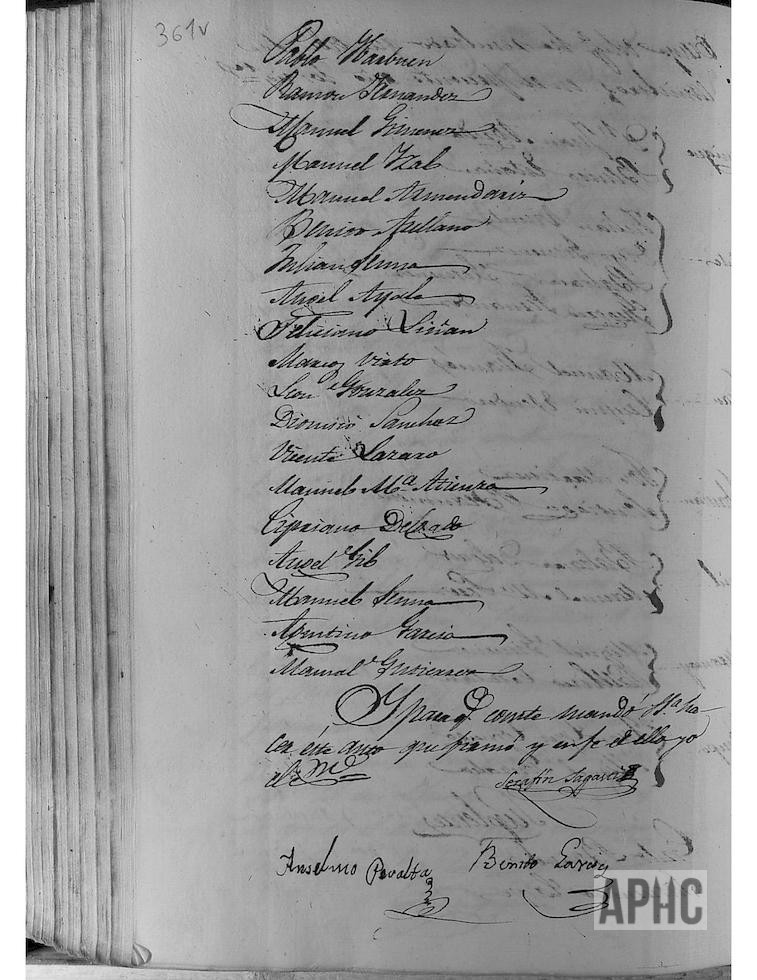 361v
Pablo Harbuen
Ramon Hernandez
Manuel Gimenez
Manuel Yzal
Manuel Armendariz
Benito Arellano
Julian Serna
Angel Ayala
Feliciano Liñan
Marcos Virto
Leon Gonzalez
Dionisio Sanchez
Vicente Lazaro
Manuel Mª Atienza
Cipriano Delgado
Angel Gil
Manuel Serna
Faustino Garcia
Manuel Gutierrez
Y para q. conste mandó Sª ha-
cer este auto que firmó y en fe de ello yo
el
Serafin
Anselmo Peralta Benito Garcia
APHC